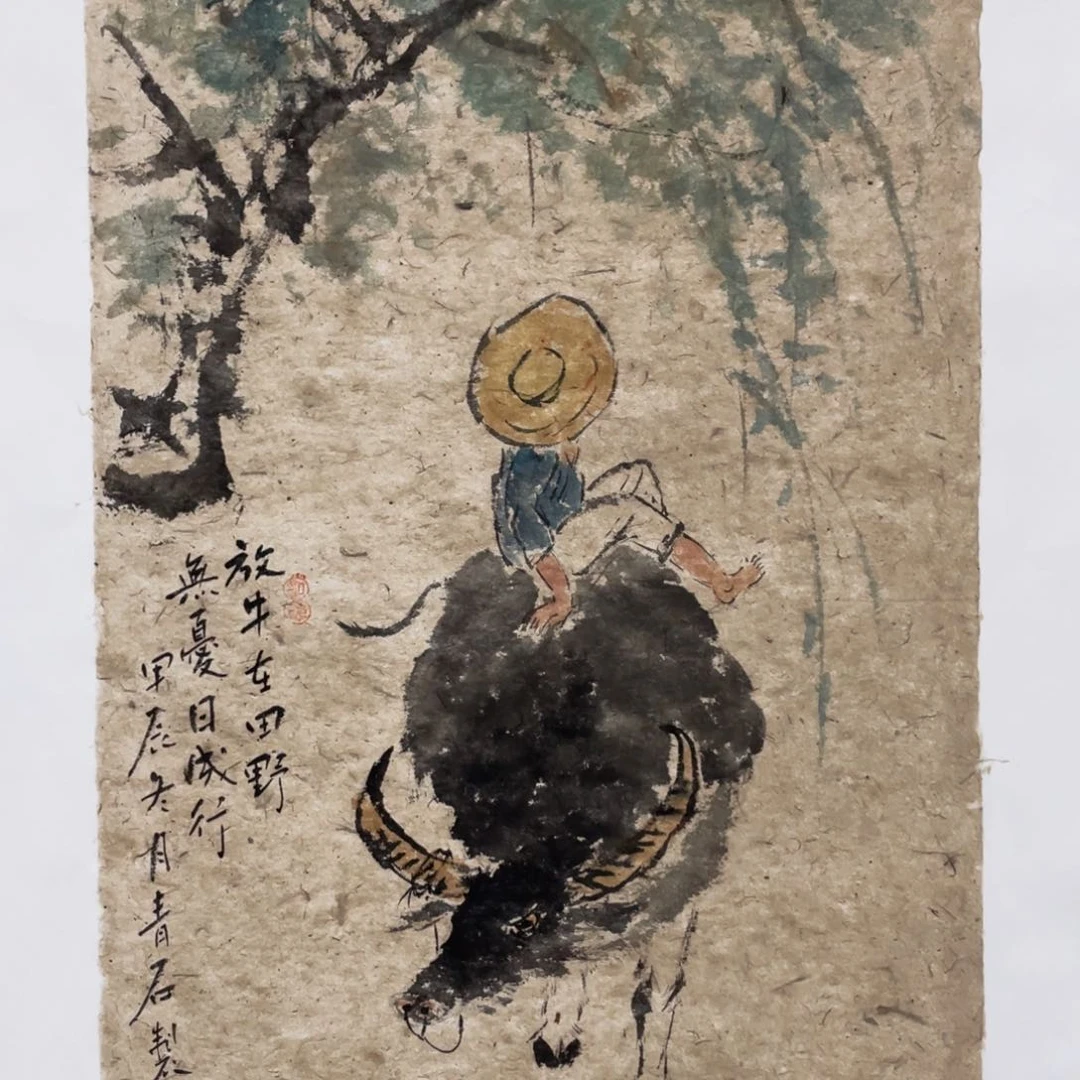 放牛在田野
無憂日成行
甲辰冬月青石製